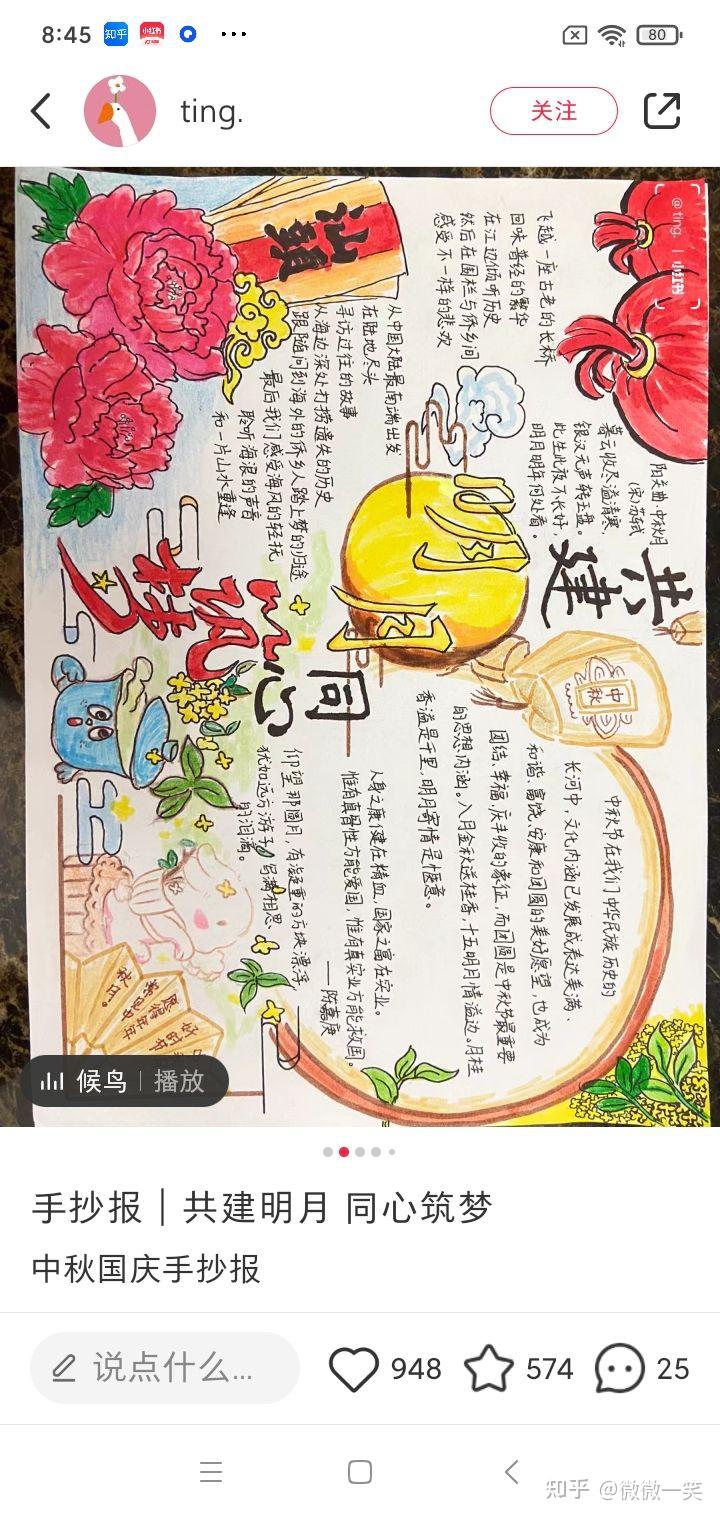 8:45
知乎
小红书
80
ting.
关注
@ting. | 小红书
汕头
飞越一座古老的长桥
回味昔经的繁华
在江边倾听历史
然后在围栏与侨乡间
感受不一样的悲欢
从中国大陆最南端出发
在陆地尽头
寻访过往的故事
从海边深处打捞遗失的历史
跟随问到海外的侨乡人踏上梦的归途
最后我们感受海风的轻抚
聆听海浪的声音
和一片山水重逢
阳关曲·中秋月
(宋)苏轼
暮云收尽溢清寒,
银汉无声转玉盘。
此生此夜不长好,
明月明年何处看。
共建
明月
同心
筑梦
中秋
中秋节在我们中华民族历史的
长河中,文化内涵已发展成表达美满、
和谐、富饶、安康和团圆的美好愿望,也成为
团结、幸福、庆丰收的象征,而团圆是中秋节最重要
的思想内涵。八月金秋送桂香,十五明月情溢边。月桂
香溢是千里,明月寄情是惬意。
人身之康健在精血,国家之富在实业。
惟有真骨性方能爱国,惟有真实业方能救国。
——陈嘉庚
仰望那圆月,有凝重的方块漂浮
犹如远方游子 局满相思
的泪滴。
好时节
愿得年年
常见中
秋月。
候鸟 | 播放
手抄报 | 共建明月 同心筑梦
中秋国庆手抄报
说点什么...
948
574
25
知乎 @微微一笑